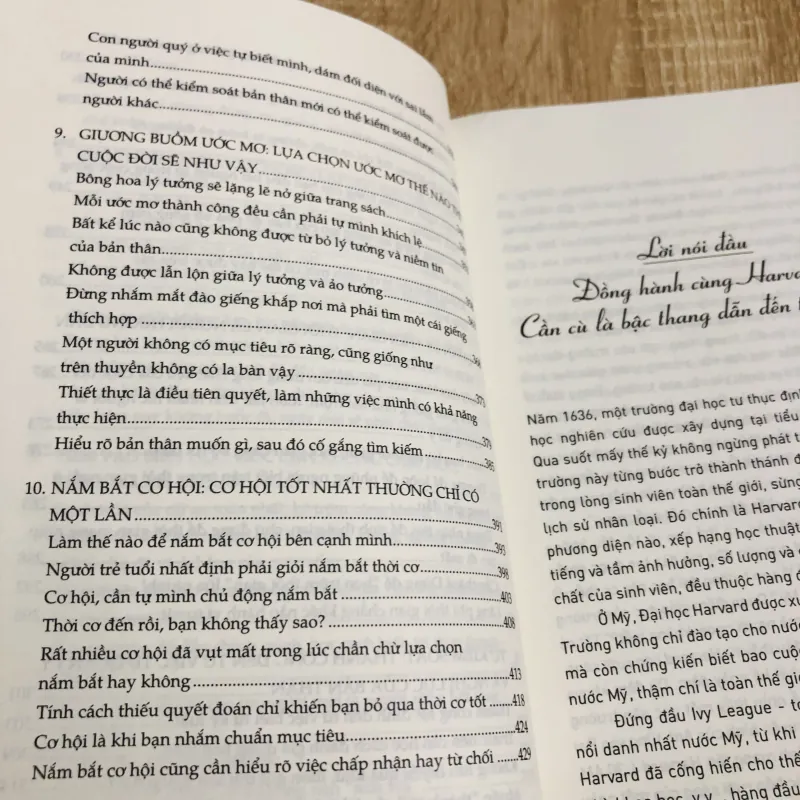 Con người quý ở việc tự biết mình, dám đối diện với sai lầm
của mình
Người có thể kiểm soát bản thân mới có thể kiểm soát được
người khác
9. GIƯƠNG BUỒM ƯỚC MƠ: LỰA CHỌN ƯỚC MƠ THẾ NÀO
CUỘC ĐỜI SẼ NHƯ VẬY
Bông hoa lý tưởng sẽ lặng lẽ nở giữa trang sách
Mỗi ước mơ thành công đều cần phải tự mình khích lệ
Bất kể lúc nào cũng không được từ bỏ lý tưởng và niềm tin
của bản thân
Không được lẫn lộn giữa lý tưởng và ảo tưởng
Đừng nhắm mắt đào giếng khắp nơi mà phải tìm một cái giếng
thích hợp
Một người không có mục tiêu rõ ràng, cũng giống như
trên thuyền không có la bàn vậy
Thiết thực là điều tiên quyết, làm những việc mình có khả năng
thực hiện
Hiểu rõ bản thân muốn gì, sau đó cố gắng tìm kiếm
10. NẮM BẮT CƠ HỘI: CƠ HỘI TỐT NHẤT THƯỜNG CHỈ CÓ
MỘT LẦN 391
Làm thế nào để nắm bắt cơ hội bên cạnh mình 393
Người trẻ tuổi nhất định phải giỏi nắm bắt thời cơ 398
Cơ hội, cần tự mình chủ động nắm bắt 403
Thời cơ đến rồi, bạn không thấy sao? 408
Rất nhiều cơ hội đã vụt mất trong lúc chần chừ lựa chọn
nắm bắt hay không 413
Tính cách thiếu quyết đoán chỉ khiến bạn bỏ qua thời cơ tốt 418
Cơ hội là khi bạn nhắm chuẩn mục tiêu 424
Nắm bắt cơ hội cũng cần hiểu rõ việc chấp nhận hay từ chối 429
Lời nói đầu
Đồng hành cùng Harva
Cần cù là bậc thang dẫn đến
Năm 1636, một trường đại học tư thục địn
học nghiên cứu được xây dựng tại tiểu
Qua suốt mấy thế kỷ không ngừng phát
trường này từng bước trở thành thánh đ
trong lòng sinh viên toàn thế giới, sừng
lịch sử nhân loại. Đó chính là Harvar
phương diện nào, xếp hạng học thuật
tiếng và tầm ảnh hưởng, số lượng và
chất của sinh viên, đều thuộc hàng đ
Ở Mỹ, Đại học Harvard được xu
Trường không chỉ đào tạo cho nước
mà còn chứng kiến biết bao cuộ
nước Mỹ, thậm chí là toàn thế giớ
Đứng đầu Ivy League - to
nổi danh nhất nước Mỹ, từ khi
Harvard đã cống hiến cho thế
học, v.v., hàng đầu